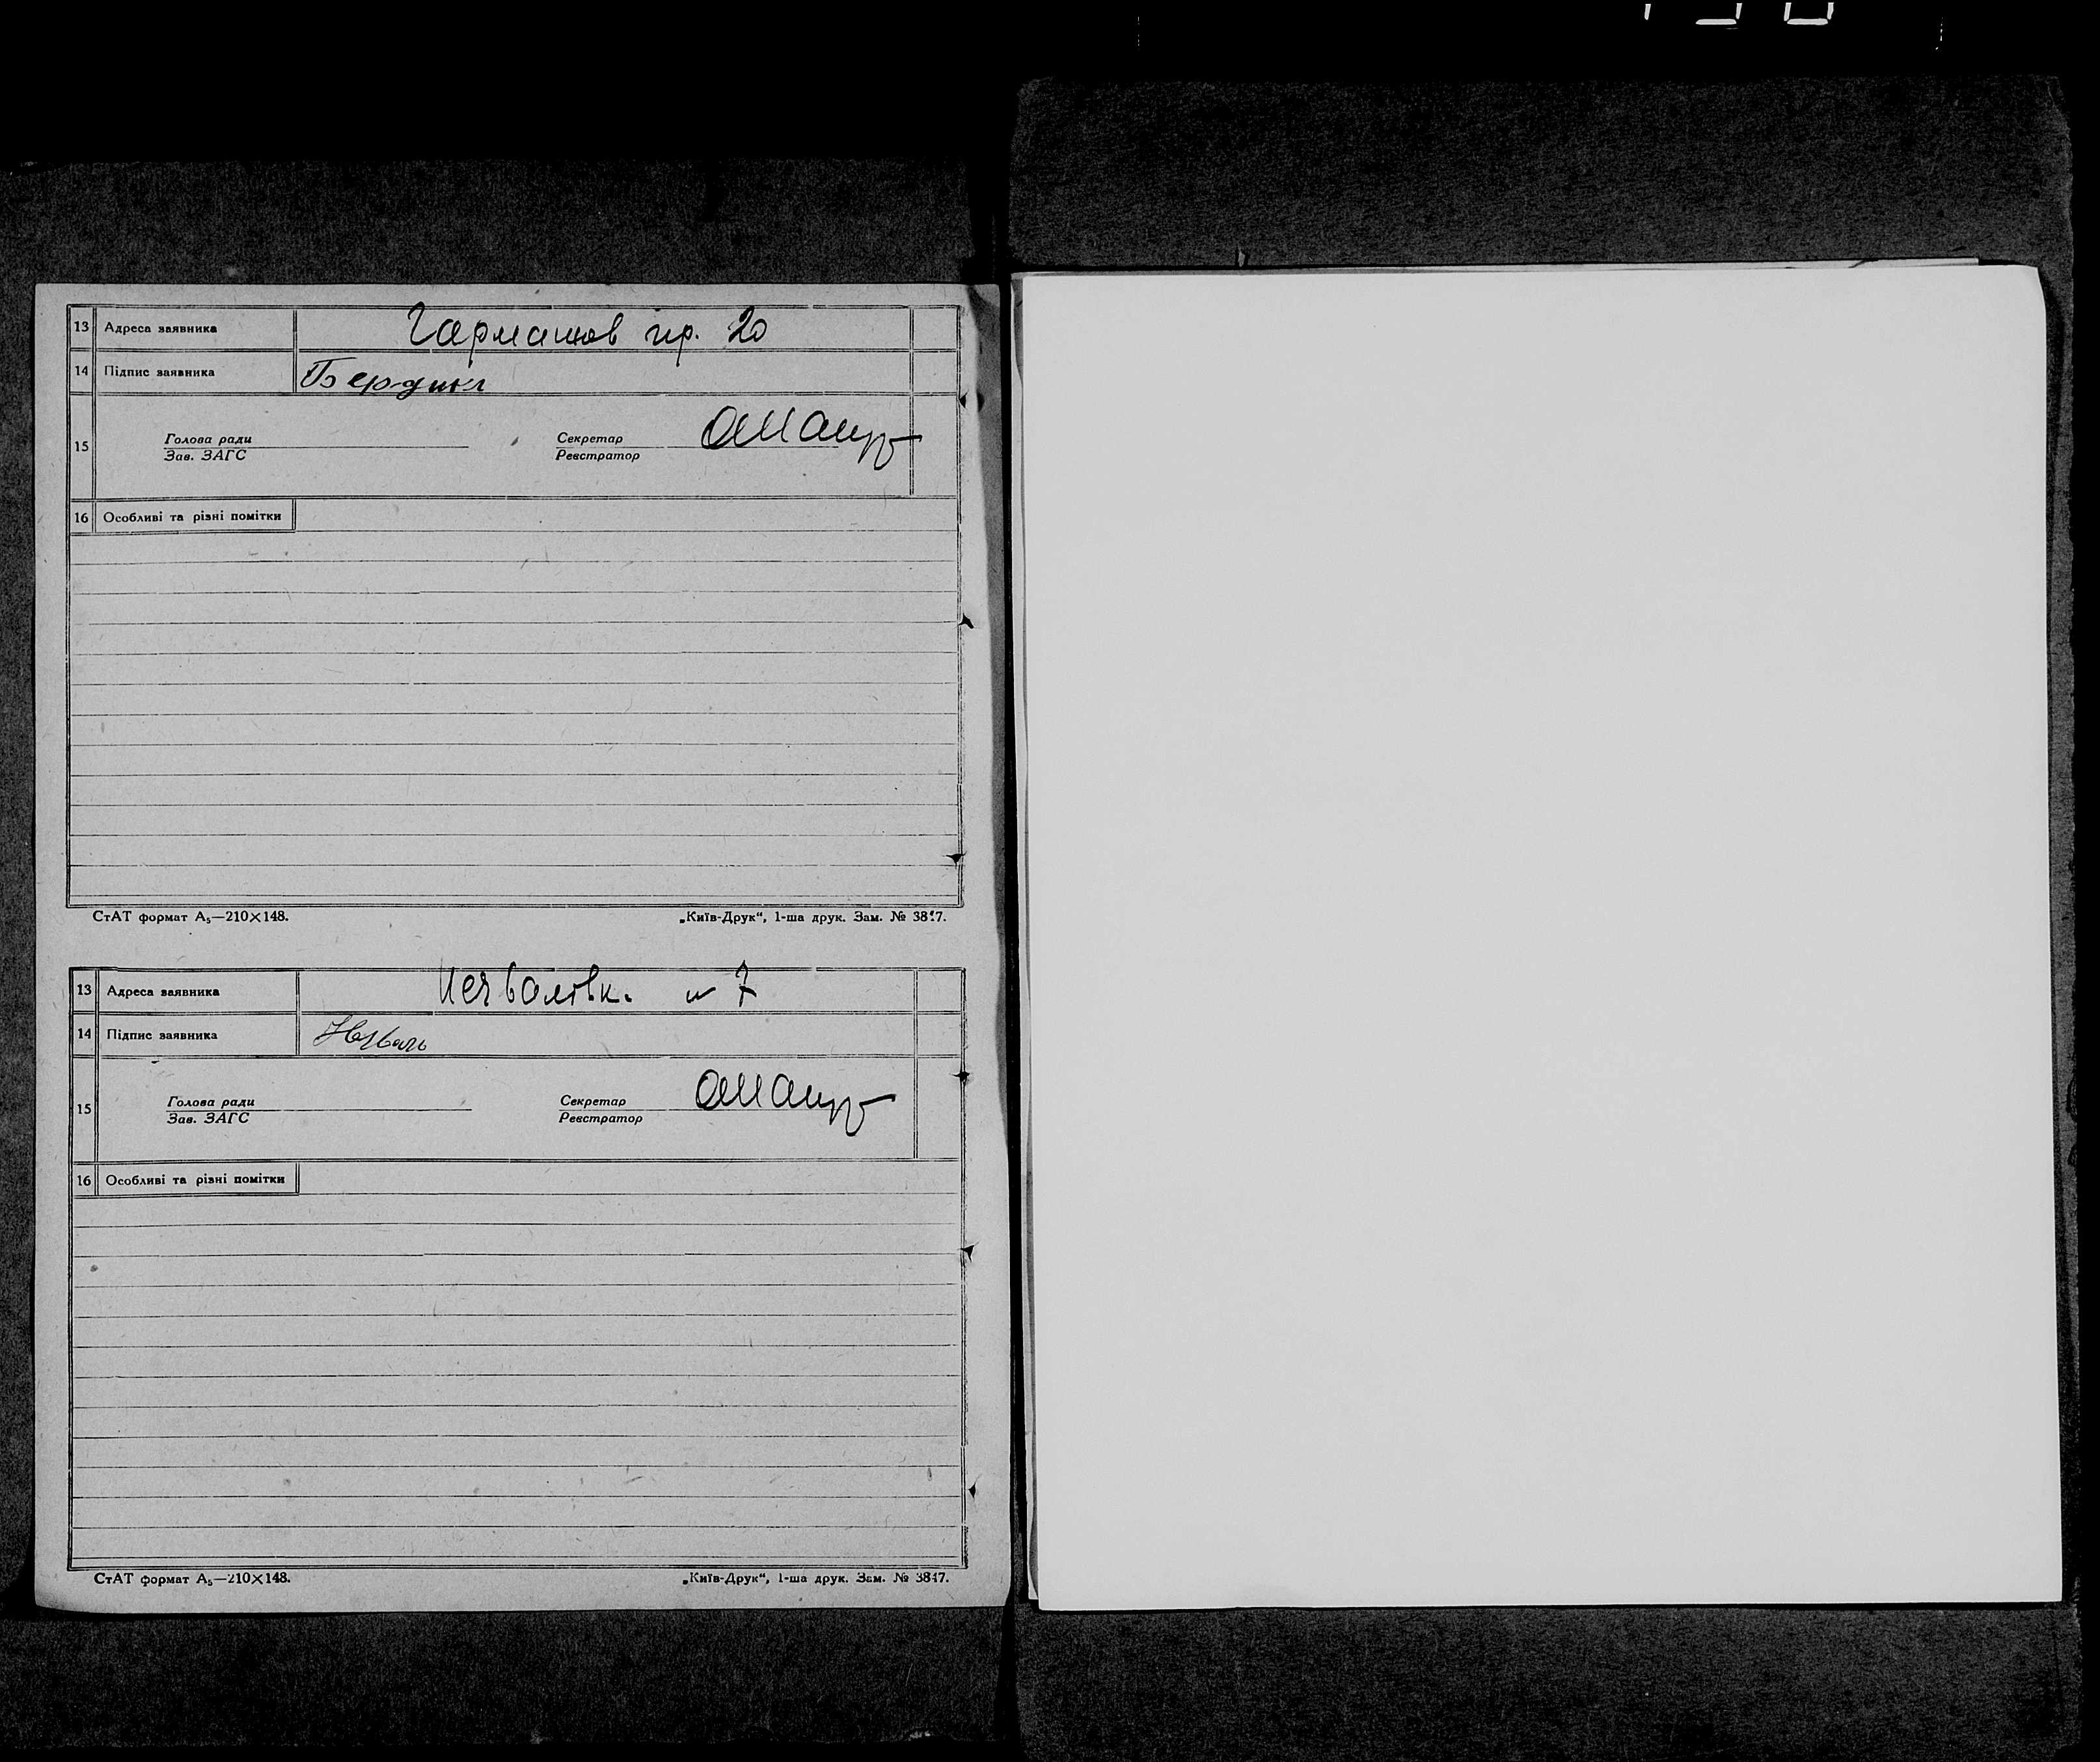 13 Адреса заявника Гармашов пр. 20
14 Підпис заявника Бердик
15 Голова ради
Зав. ЗАГС
Секретар
Реєстратор
16 Особливі та різні помітки
СтАТ формат А₅—210×148. „Київ-Друк“, 1-ша друк. Зам. № 3847.
13 Адреса заявника № 7
14 Підпис заявника
15 Голова ради
Зав. ЗАГС
Секретар
Реєстратор
16 Особливі та різні помітки
СтАТ формат А₅—210×148. „Київ-Друк“, 1-ша друк. Зам. № 3847.